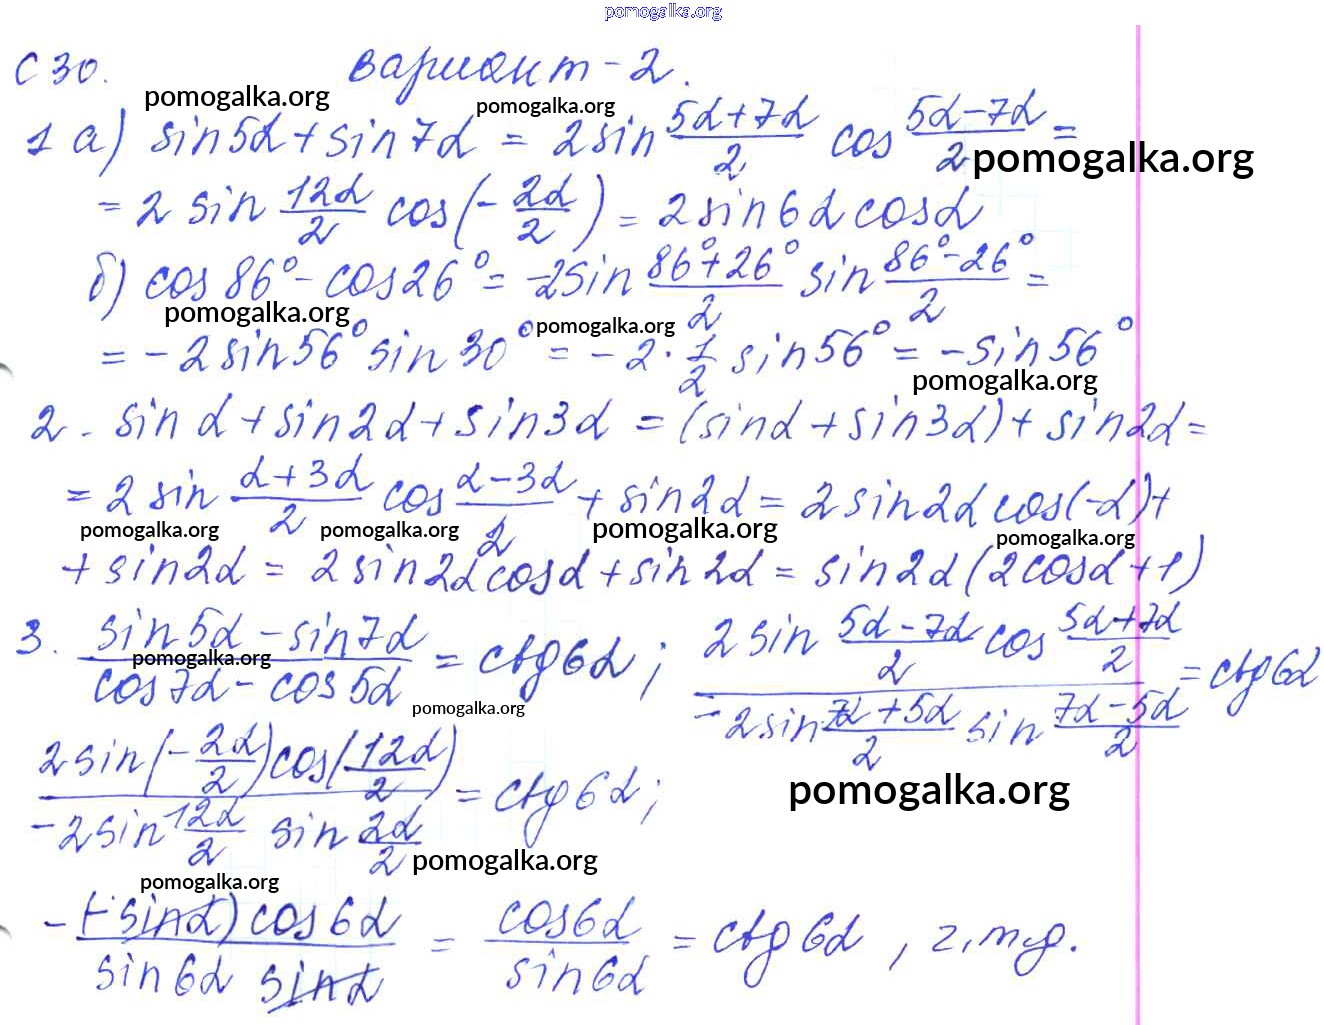 pomogalka.org
С 30. Вариант-2.
pomogalka.org pomogalka.org
1 а) sin5α + sin7α = 2 sin (5α+7α)/2 cos (5α-7α)/2 =
pomogalka.org
= 2 sin 12α/2 cos(-2α/2) = 2sin6α cosα
б) cos86° - cos26° = -2sin (86°+26°)/2 sin (86°-26°)/2 =
pomogalka.org pomogalka.org
= -2sin56° sin30° = -2 · 1/2 sin56° = -sin56°
pomogalka.org
2. sin α + sin2α + sin3α = (sinα + sin3α) + sin2α =
= 2 sin (α+3α)/2 cos (α-3α)/2 + sin2α = 2sin2α cos(-α)+
pomogalka.org pomogalka.org pomogalka.org pomogalka.org
+ sin2α = 2sin2α cosα + sin2α = sin2α(2cosα+1)
3. (sin5α - sin7α)/(cos7α - cos5α) = ctg6α; (2 sin (5α-7α)/2 cos (5α+7α)/2)/(-2sin (7α+5α)/2 sin (7α-5α)/2) = ctg6α
pomogalka.org
pomogalka.org
(2sin(-2α/2)cos(12α/2))/(-2sin 12α/2 sin 2α/2) = ctg6α;
pomogalka.org
pomogalka.org
pomogalka.org
-(-sinα)cos6α/(sin6α sinα) = cos6α/sin6α = ctg6α, г.т.д.